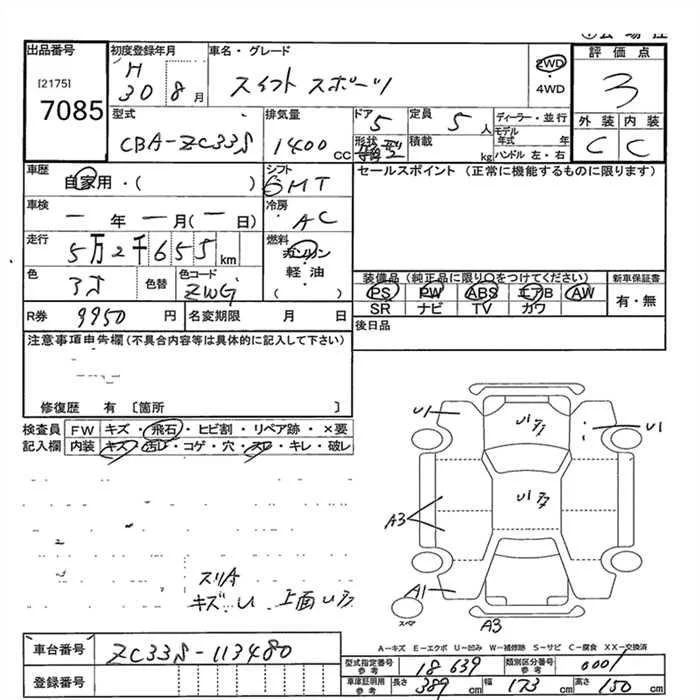 出品番号
[2175]
7085
初度登録年月
H
30 8月
車名・グレード
スイフト スポーツ
2WD
・
4WD
評価点
3
外装 内装
C C
型式
CBA-ZC33S
排気量
1400 CC
ドア
5
形状
定員
5 人
積載
kg
ディーラー・並行
モデル年式 年
ハンドル 左・右
車歴
自家用・( )
シフト
6MT
セールスポイント (正常に機能するものに限ります)
車検
ー年ー月(ー日)
冷房
AC
走行
5万2千655km
燃料
ガソリン
軽・油
( )
色
色替
色コード
ZWG
装備品(純正品に限り○をつけてください)
新車保証書
PS PW ABS エアB AW
SR ナビ TV カワ
有・無
R券 9950 円
名変期限 月 日
後日品
注意事項申告欄(不具合内容等は具体的に記入して下さい)
修復歴 有 〔箇所 〕
検査員 FW キズ・飛石・ヒビ割・リペア跡・×要
記入欄 内装 キズ・汚レ・コゲ・穴・スレ・キレ・破レ
U1
U1
A3
A1
A3
スペア
スリA
キズ U 上面
A-キズ E-エクボ U-凹み W-補修跡 S-サビ C-腐食 XX-交換済
車台番号 ZC33S-113480
登録番号
型式指定番号 参考 18639
類別区分番号 参考 0001
車庫証明用 参考 長さ 389 cm 幅 173 cm 高さ 150 cm